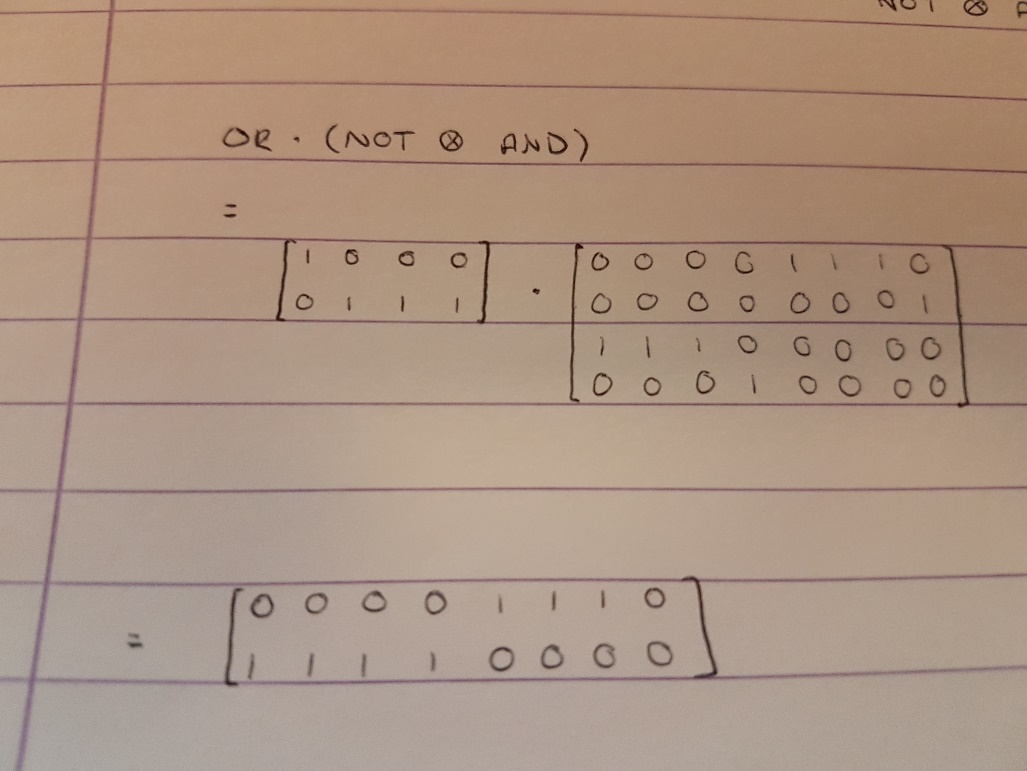 NOT ⊗
OR · (NOT ⊗ AND)
=
[1 0 0 0] · [0 0 0 0 1 1 1 0]
[0 1 1 1] [0 0 0 0 0 0 0 1]
[1 1 1 0 0 0 0 0]
[0 0 0 1 0 0 0 0]
= [0 0 0 0 1 1 1 0]
[1 1 1 1 0 0 0 0]